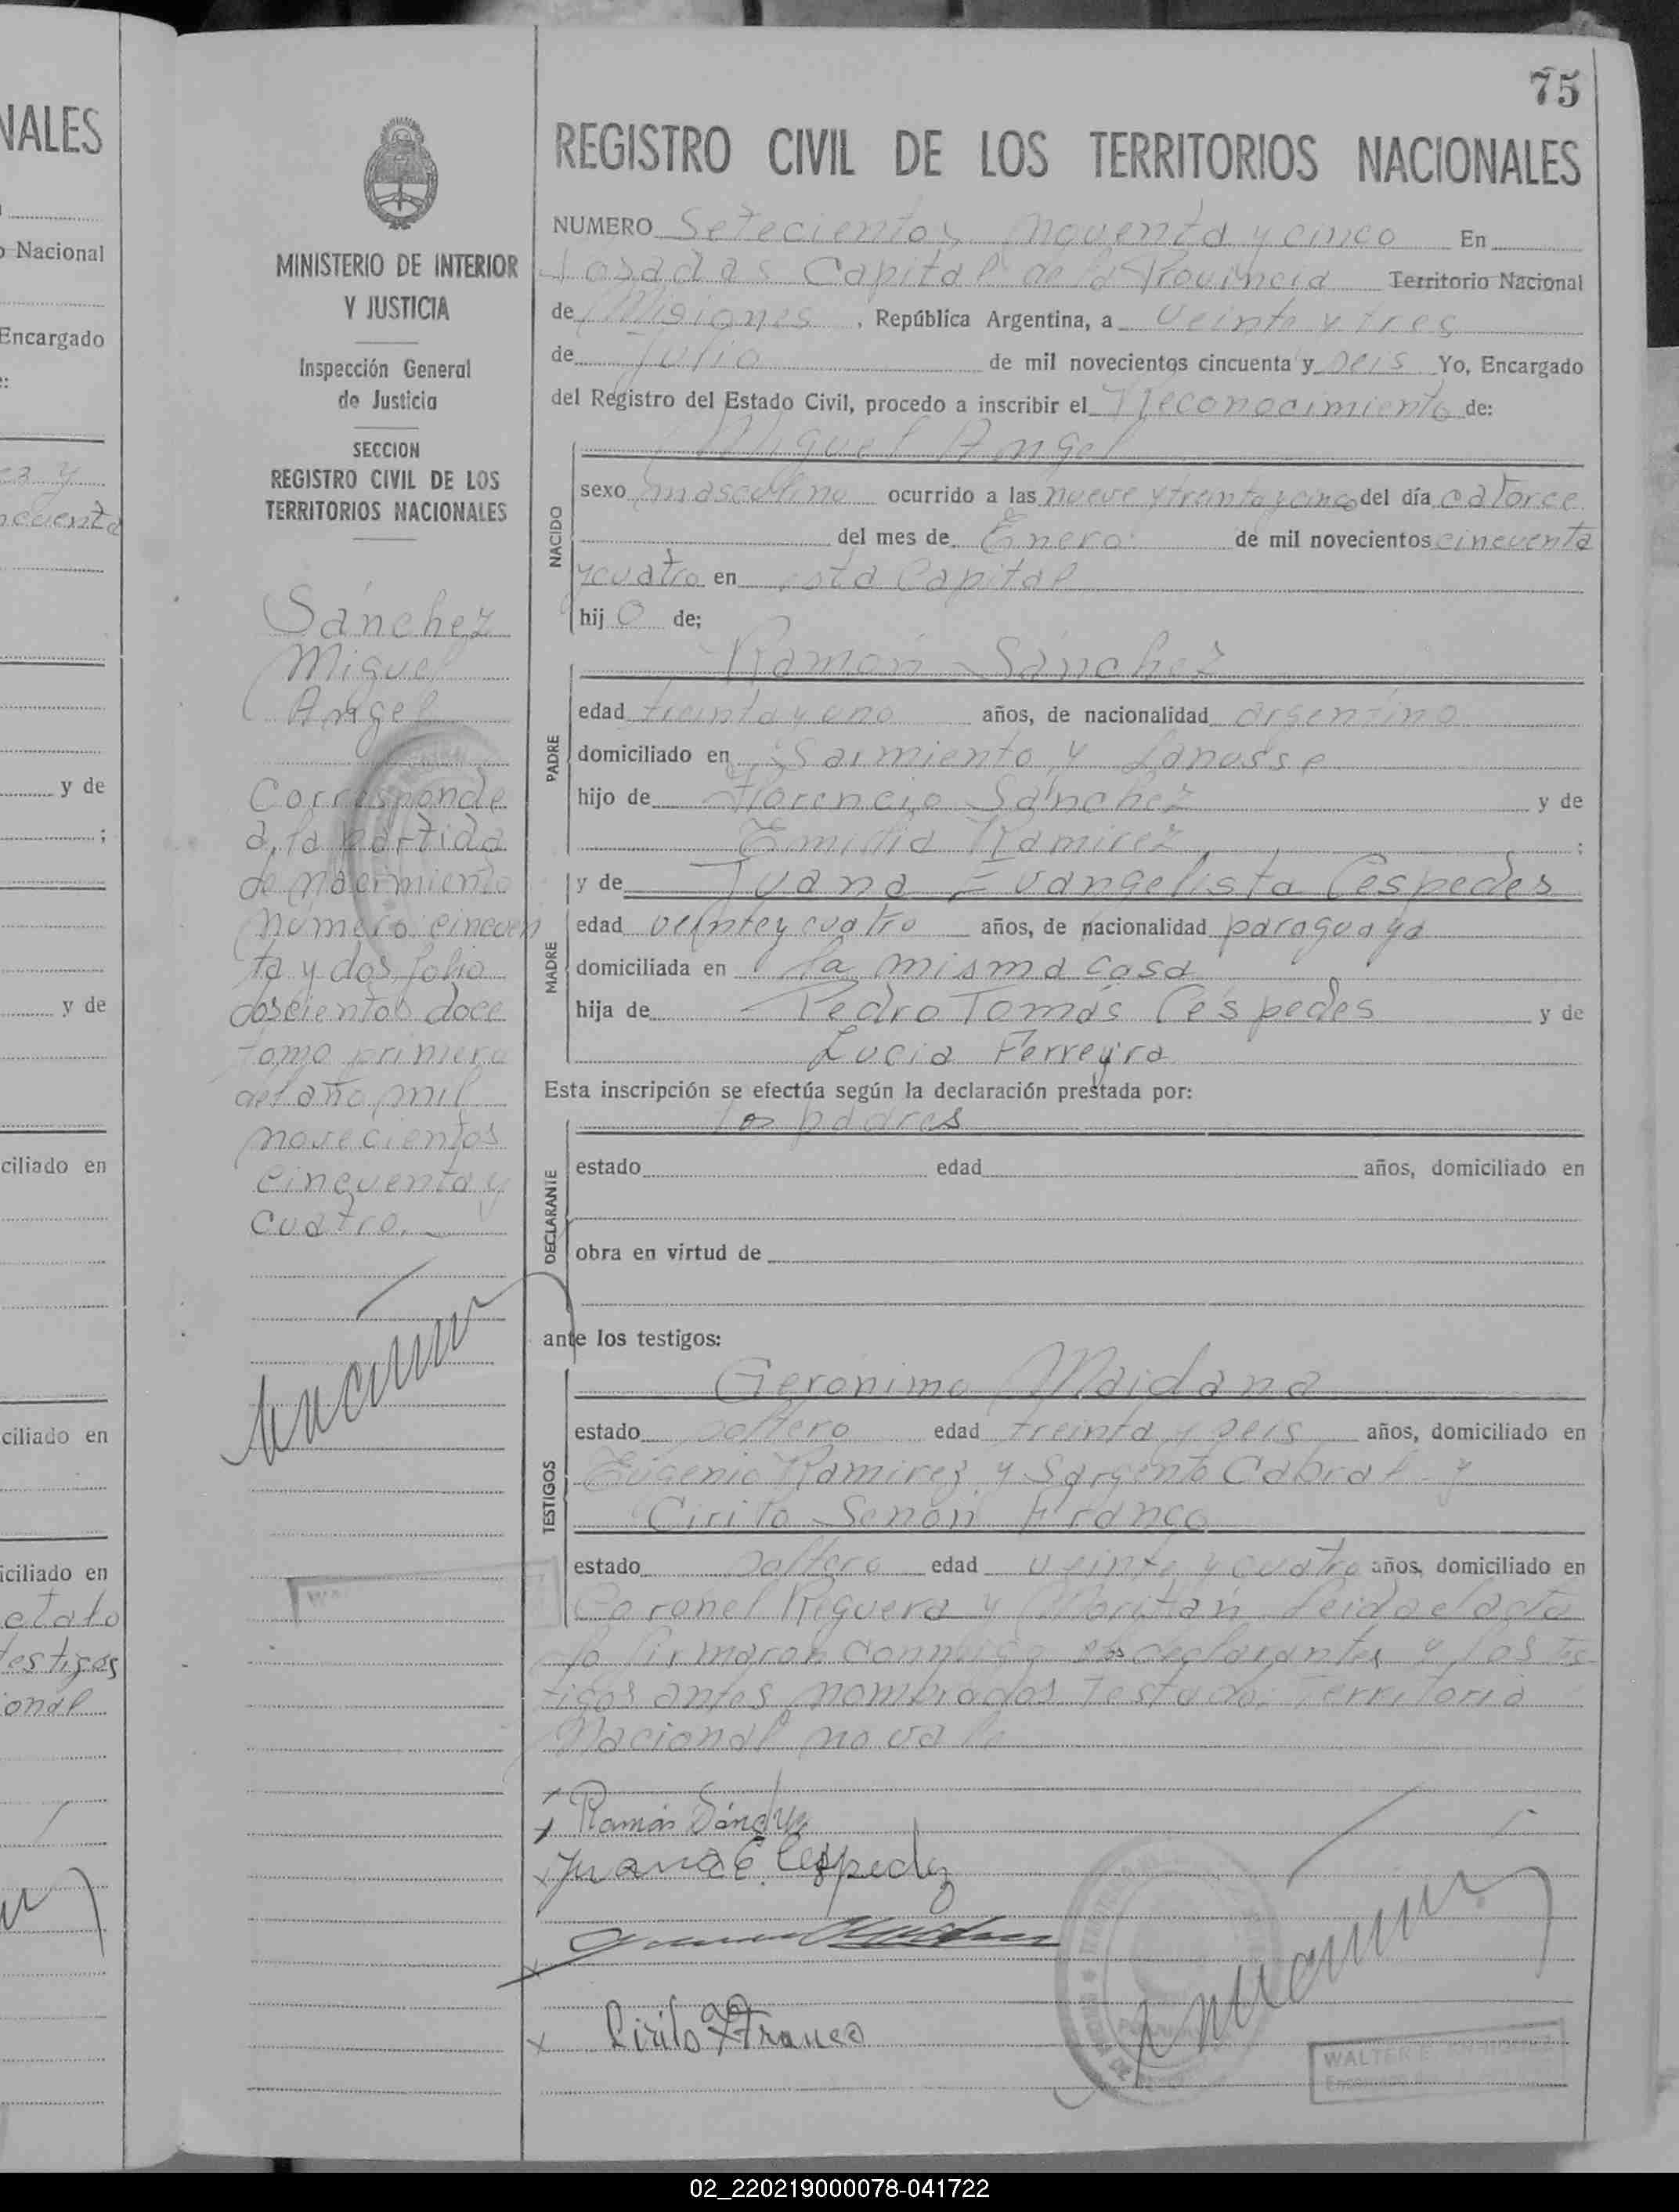 75
REGISTRO CIVIL DE LOS TERRITORIOS NACIONALES
NUMERO Setecientos noventa y cinco En
Posadas Capital de la Provincia Territorio Nacional
de Misiones, República Argentina, a veinte y tres
de Julio de mil novecientos cincuenta y seis Yo, Encargado
del Registro del Estado Civil, procedo a inscribir el Reconocimiento de:
NACIDO
Miguel Angel
sexo masculino ocurrido a las nueve y treinta y cinco del día catorce
del mes de Enero de mil novecientos cincuenta
y cuatro en esta Capital
hij o de;
PADRE
Ramón Sánchez
edad treinta y uno años, de nacionalidad argentino
domiciliado en Sarmiento y Lanusse
hijo de Florencio Sánchez y de
Emilia Ramirez;
y de Juana Evangelista Cespedes
MADRE
edad veinte y cuatro años, de nacionalidad paraguaya
domiciliada en la misma casa
hija de Pedro Tomás Céspedes y de
Lucia Ferreyra
Esta inscripción se efectúa según la declaración prestada por:
los padres
DECLARANTE
estado edad años, domiciliado en
obra en virtud de
ante los testigos:
TESTIGOS
Geronimo Maidana
estado soltero edad treinta y seis años, domiciliado en
Eugenio Ramirez y Sargento Cabral y
Cirilo Senon Franco
estado soltero edad veinte y cuatro años, domiciliado en
Coronel Reguera y leida el acta
la firmaron conmigo los declarantes y los tes
tigos antes nombrados. Testado: Territorio
Nacional no vale
Ramón Sánchez
Juana E. Cespedez
Cirilo Franco
WALTER E.
MINISTERIO DE INTERIOR
Y JUSTICIA
Inspección General
de Justicia
SECCION
REGISTRO CIVIL DE LOS
TERRITORIOS NACIONALES
Sánchez
Miguel
Angel
Corresponde
a la partida
de nacimiento
número cincuen
ta y dos folio
doscientos doce
tomo primero
del año mil
novecientos
cincuenta y
cuatro.
NALES
o Nacional
Encargado
y de
y de
ciliado en
ciliado en
iciliado en
testigos
ional
02_220219000078-041722